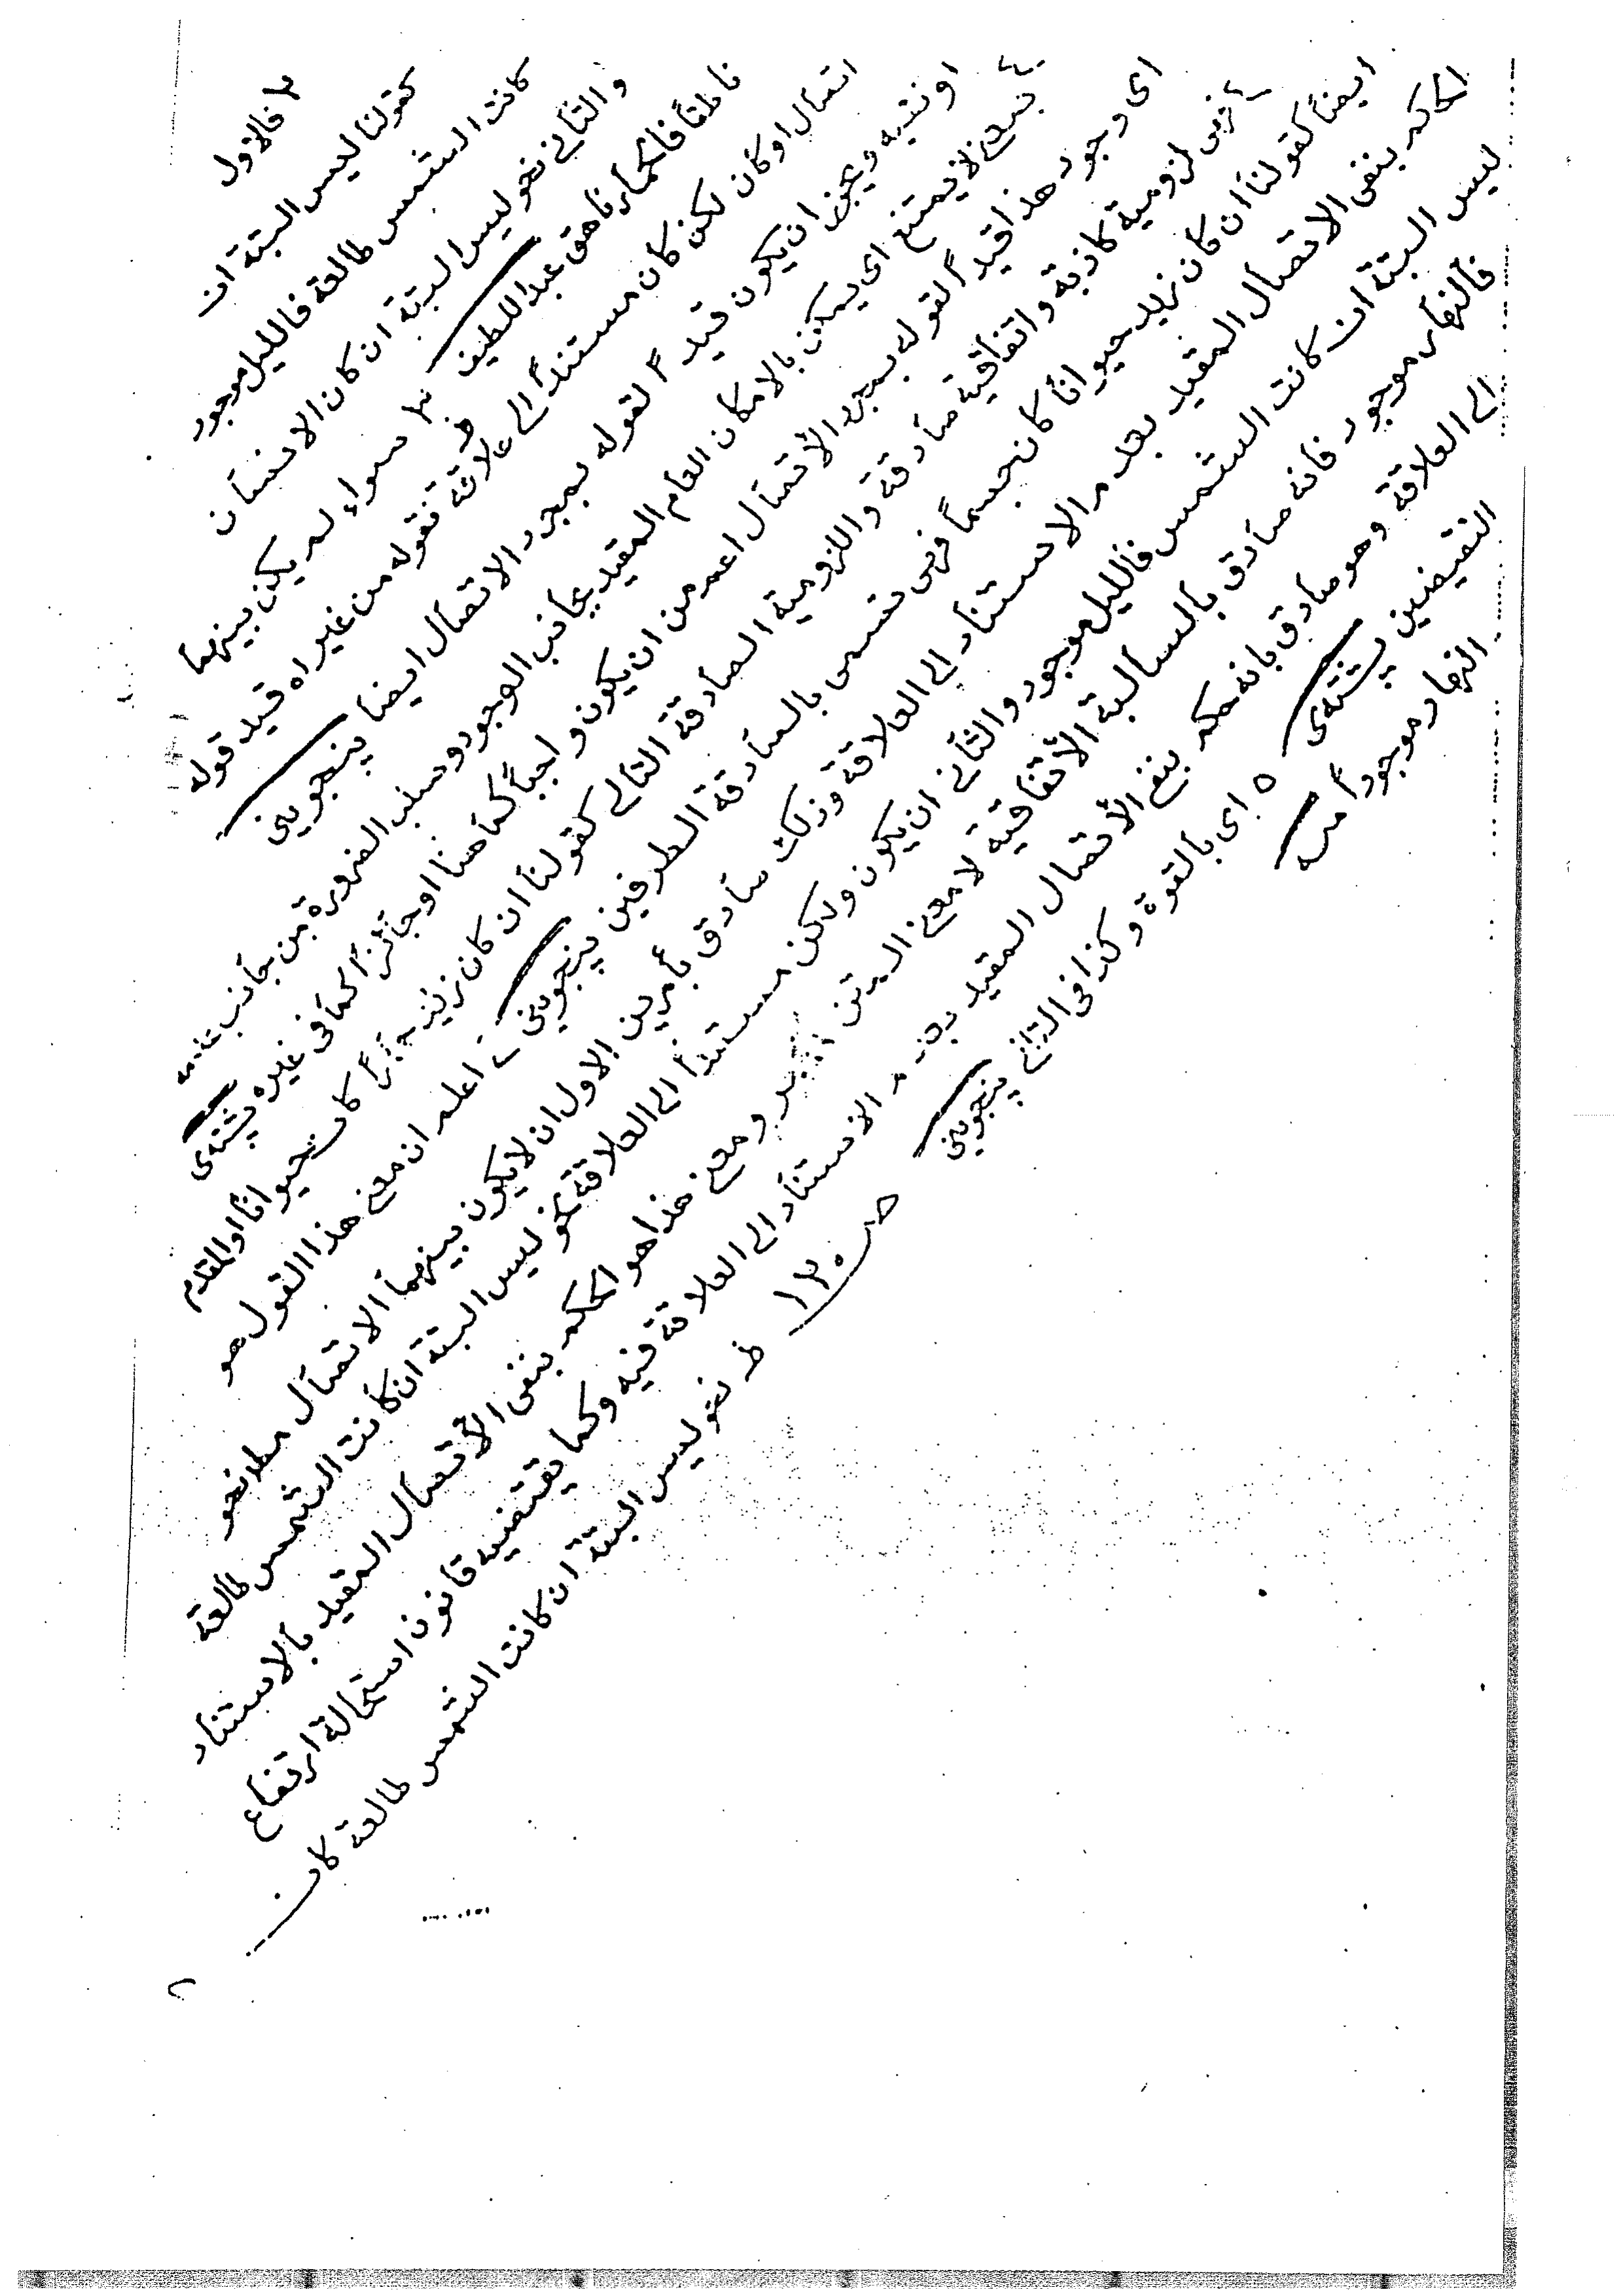 ٢ فالاول
كقولنا ليس البتة ان
كانت الشمس طالعة فالليل موجود
والثانى نحو ليس البتة ان كان الانسان
ناطقاً فالحمار ناهق عبد اللطيف ٣ سواء لم يكن بينهما
اتصال او كان لكن كان مستنداً الى علاقة فقوله من غير اه قيد قوله
او نفيه ويجوز ان يكون قيداً لقوله بمجرد الاتصال ايضا پنجوينى
بمعنى لا يمتنع اى يمكن بالامكان العام المقيد بجانب الوجود وسلب الضرورة من جانب
اى وجود هذا قيداً لقوله بمجرد الاتصال اعم من ان يكون واجباً كما هنا او جائزاً كما فى غيره پشته ى
فرض لزومية كاذبة واتفاقية صادقة واللزومية الصادقة التالى كقولنا ان كان زيد كان حيوانا والمقدم
ايضاً كقولنا ان كان زيد حيواناً كان جسماً فرض تسمى بالصادقة الطرفين پنجوينى اعلم ان معنى هذا القول هو
الحكم بنفى الاتصال المقيد بعدم الاستناد الى العلاقة وذلك صادق بأمرين الاول ان لا يكون بينهما الاتصال مط نحو
ليس البتة ان كانت الشمس فالليل موجود والثانى ان يكون ولكن مستندا الى العلاقة نحو ليس البتة ان كانت الشمس طالعة
فالنهار موجود فانه صادق بالسالبة الاتفاقية لا معنى ومعنى هذا هو الحكم بنفى الاتصال المقيد بالاستناد
الى العلاقة وهو صادق بانه حكم بنفى الاتصال المقيد بعدم الاستناد الى العلاقة فيه وكما يقتضيه قانون استحالة ارتفاع
النقيضين پشته ى ٥ اى بالقوة وكذا فى الثانى پنجوينى ص ١٣٠ ط نحو ليس البتة ان كانت الشمس طالعة كان
النهار موجوداً منه